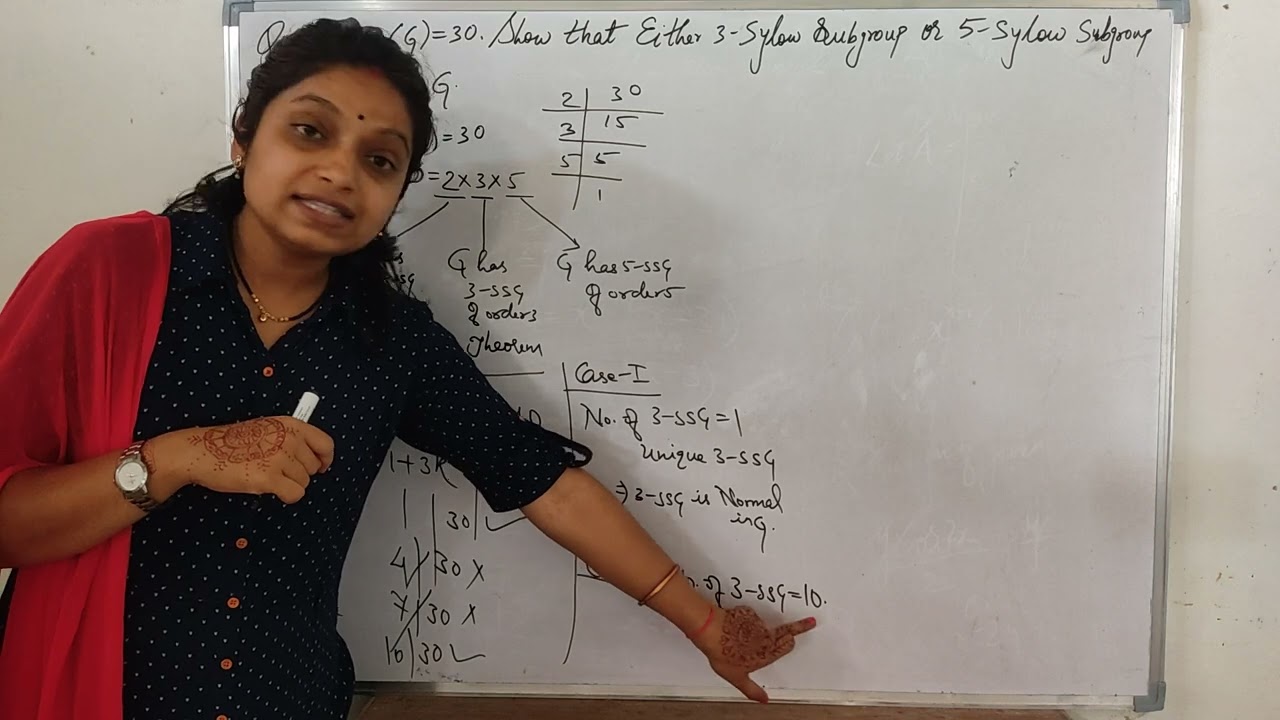 Q (G)=30. Show that Either 3-Sylow Subgroup or 5-Sylow Subgroup
G.
)=30
=2×3×5
2 | 30
3 | 15
5 | 5
1
G has
3-SSG
of order3
G has 5-SSG
of order5
Theorem
1+3K
1 | 30 ✓
4 | 30 ×
7 | 30 ×
10 | 30 ✓
Case-I
No. of 3-SSG=1
Unique 3-SSG
⇒ 3-SSG is Normal
in G.
of 3-SSG=10.